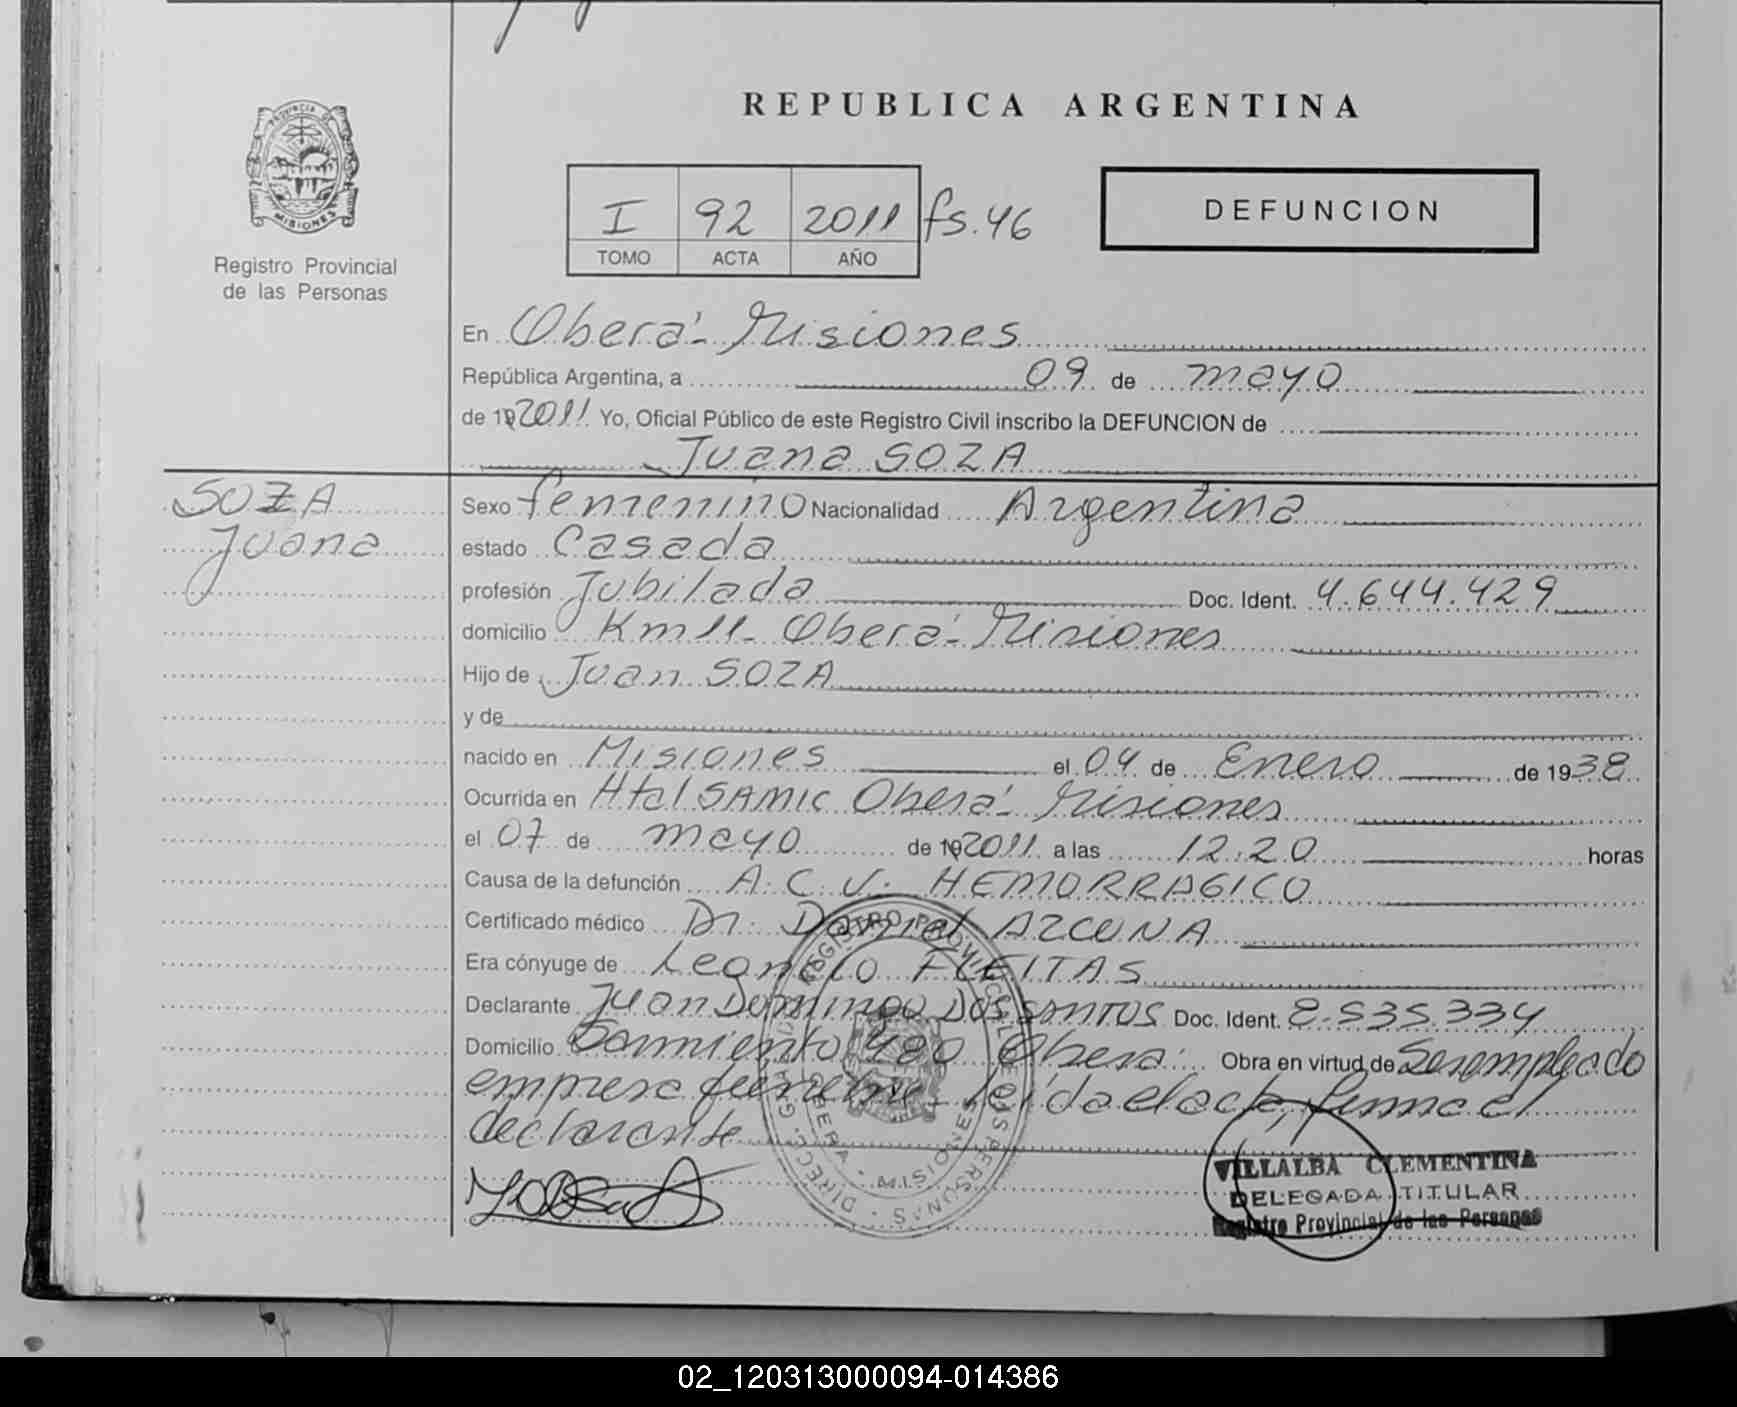 REPUBLICA ARGENTINA
PROVINCIA DE
MISIONES
Registro Provincial
de las Personas
I 92 2011 fs. 46
TOMO ACTA AÑO
DEFUNCION
En Oberá - Misiones
República Argentina, a 09 de mayo
de 19 2011 Yo, Oficial Público de este Registro Civil inscribo la DEFUNCION de
Juana SOZA
SOZA
Juana
Sexo femenino Nacionalidad Argentina
estado Casada
profesión Jubilada Doc. Ident. 4.644.429
domicilio Km 11 - Oberá - Misiones
Hijo de Juan SOZA
y de
nacido en Misiones el 04 de Enero de 1938
Ocurrida en Htal SAMIC Oberá - Misiones
el 07 de mayo de 19 2011 a las 12.20 horas
Causa de la defunción A.C.V. HEMORRAGICO
Certificado médico Dr. Daniel AZCONA
Era cónyuge de Leoncio FLEITAS
Declarante Juan Domingo DOS SANTOS Doc. Ident. 8.535.334
Domicilio Sarmiento 480 Oberá Obra en virtud de Ser empleado
empresa funebre - leída el acta, firma el
declarante
REGISTRO PROVINCIAL DE LAS PERSONAS
OBERA - MISIONES
VILLALBA CLEMENTINA
DELEGADA TITULAR
Registro Provincial de las Personas
02_120313000094-014386